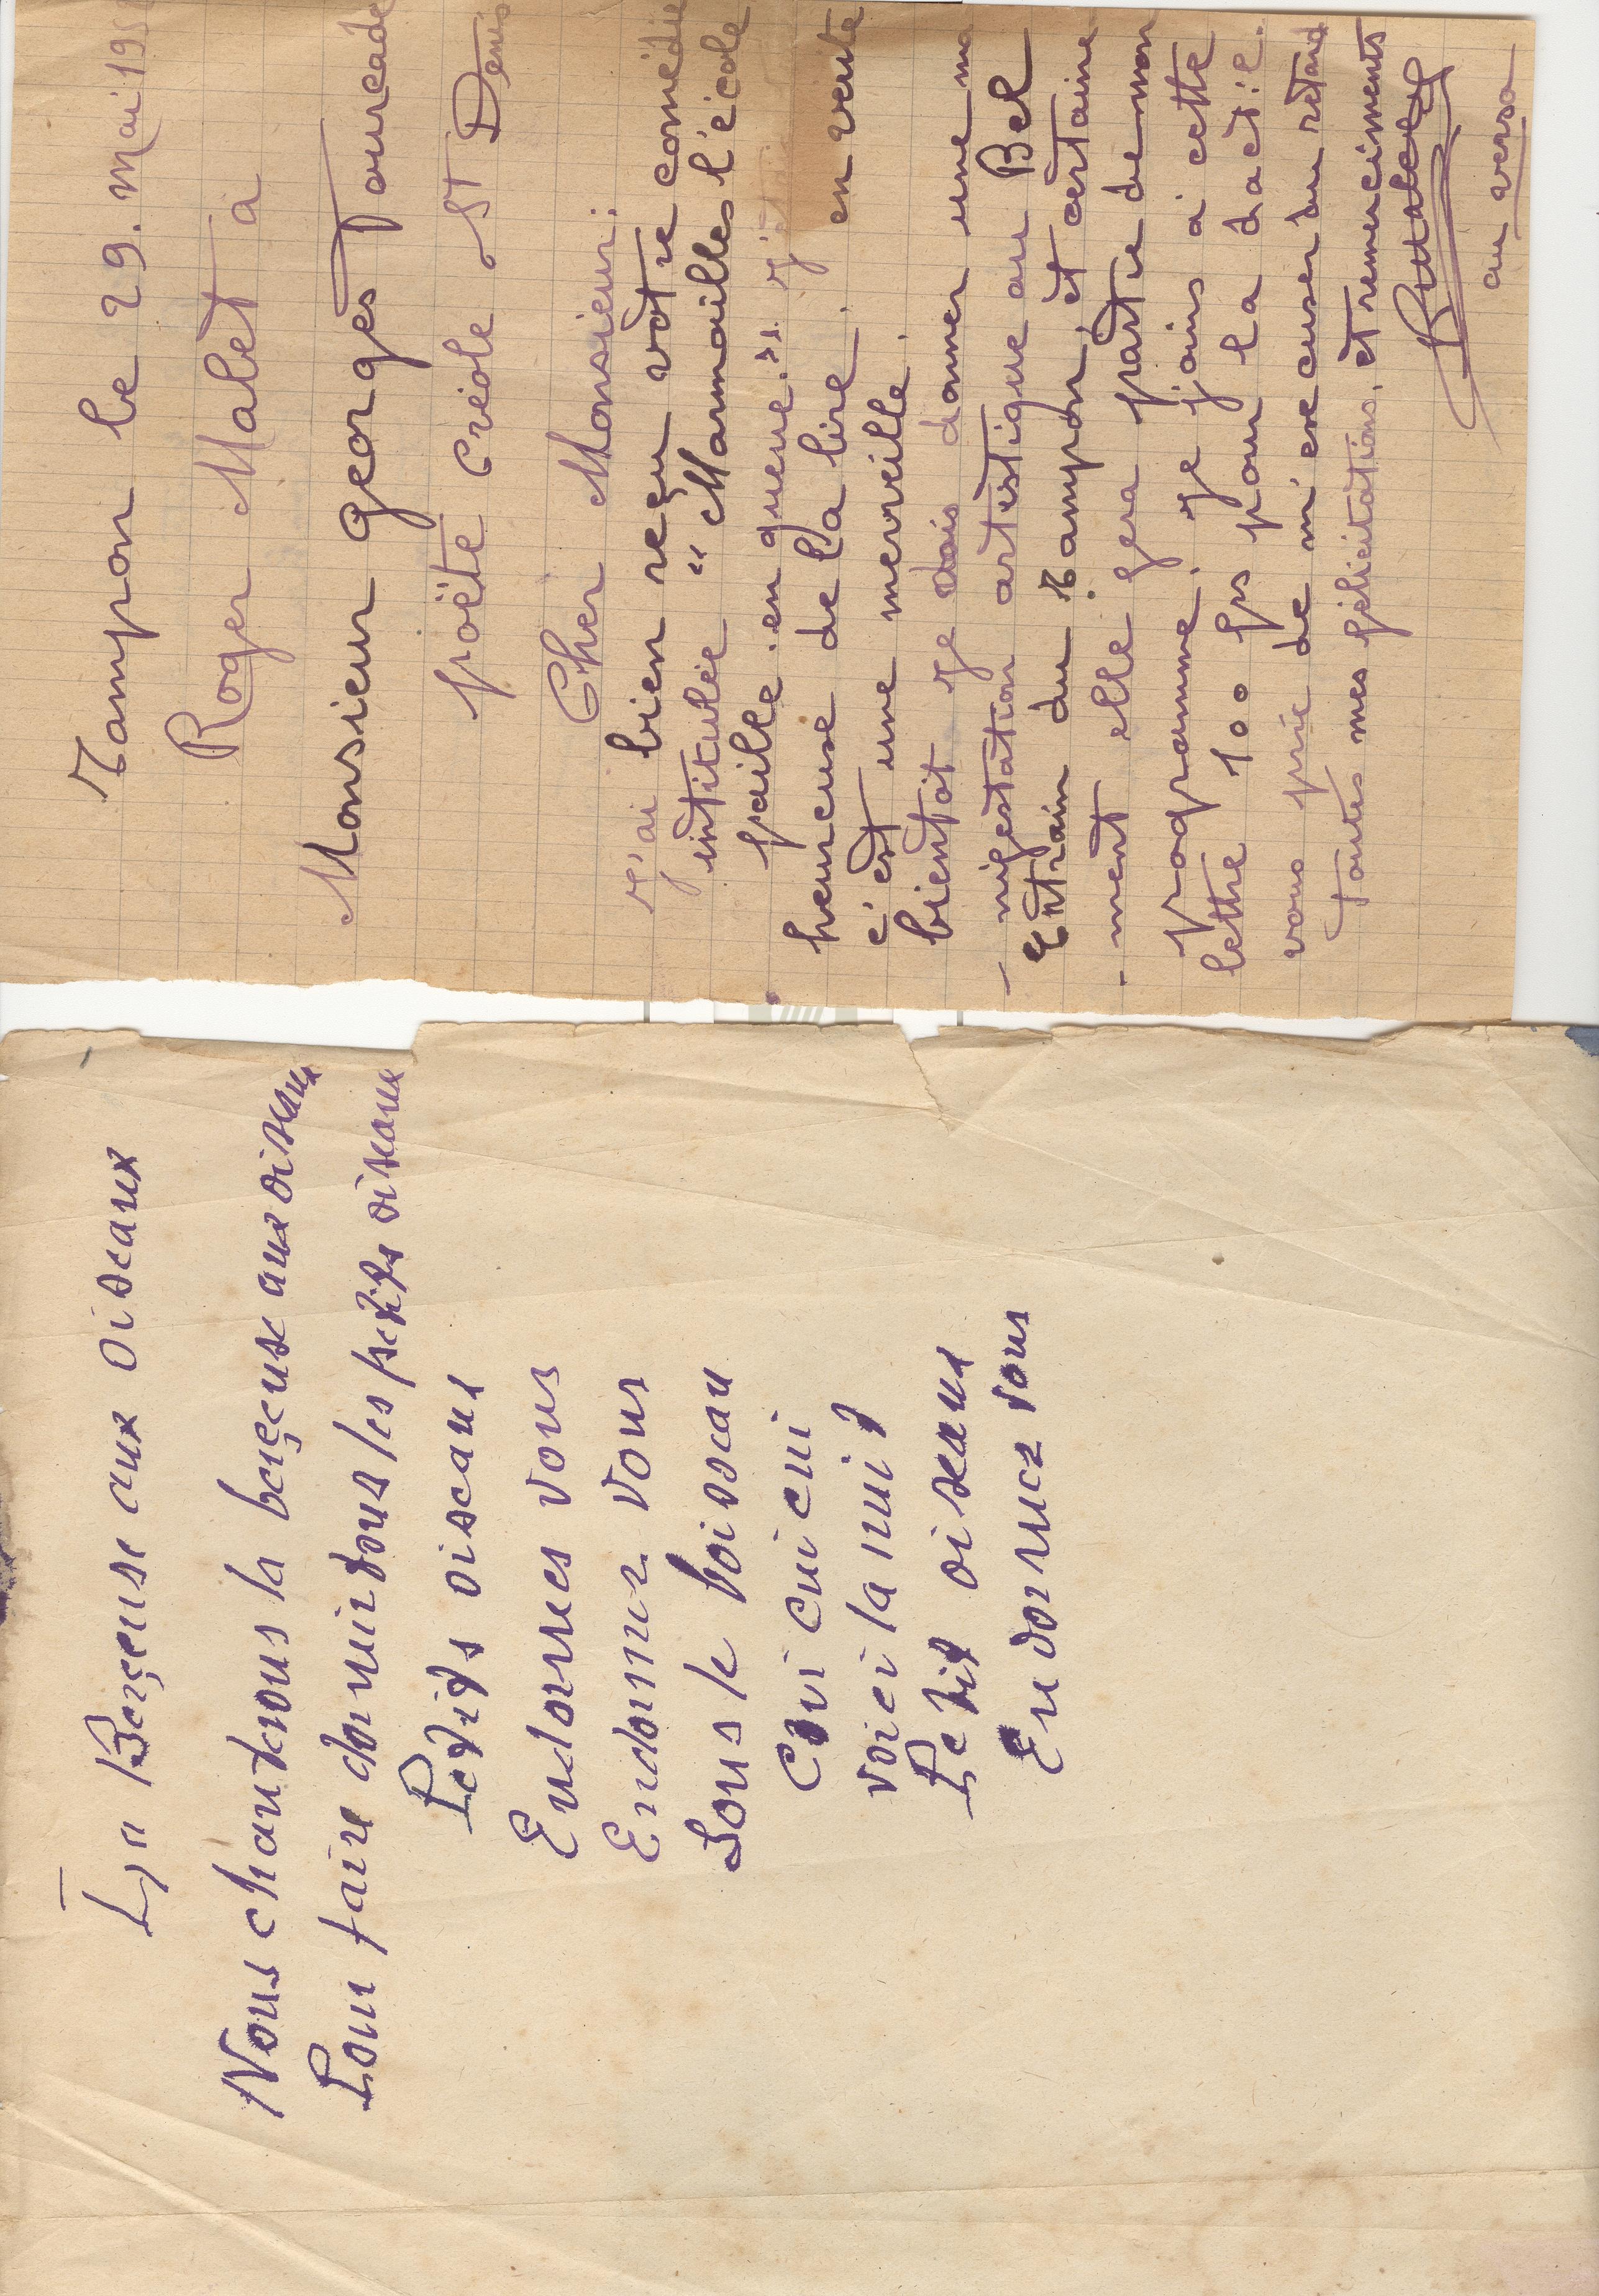 Tampon le 29. Mai 195
Roger Malet à
Monsieur georges Fourcade
poëte créole St Denis
Cher Monsieur:
J'ai bien reçu votre comédie
intitulée "Marmailles l'école
paille en queue." J'
heureuse de la lire. en vente
c'est une merveille.
bientôt je dois donner une ma
-nifestation artistique au Bel
Entrain du Tampon, et certaine
-ment elle fera partie de mon
programme. Je joins à cette
lettre 100 frs pour la dact:ie.
vous prie de m'excuser du retard
Toutes mes félicitations, et remerciments
RMalet
au verso
La Berçeuse aux oiseaux
Nous chantrons la berçeuse aux oiseaux
Pour faire dormir tous les petits oiseaux
Petits oiseaux
Endormes vous
Endormez vous
Sous le boisseau
Cui cui cui
Voici la nuit
Petit oiseaux
Endormez vous